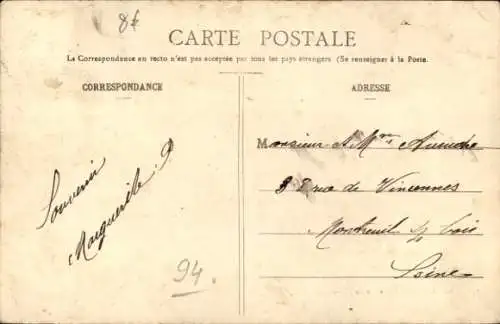 8€
CARTE POSTALE
La Correspondance au recto n'est pas acceptée par tous les pays étrangers (Se renseigner à la Poste.
CORRESPONDANCE
ADRESSE
Souvenir
Marguerite
94
Monsieur et Mme
38 rue de Vincennes
Montreuil s/ bois
Seine